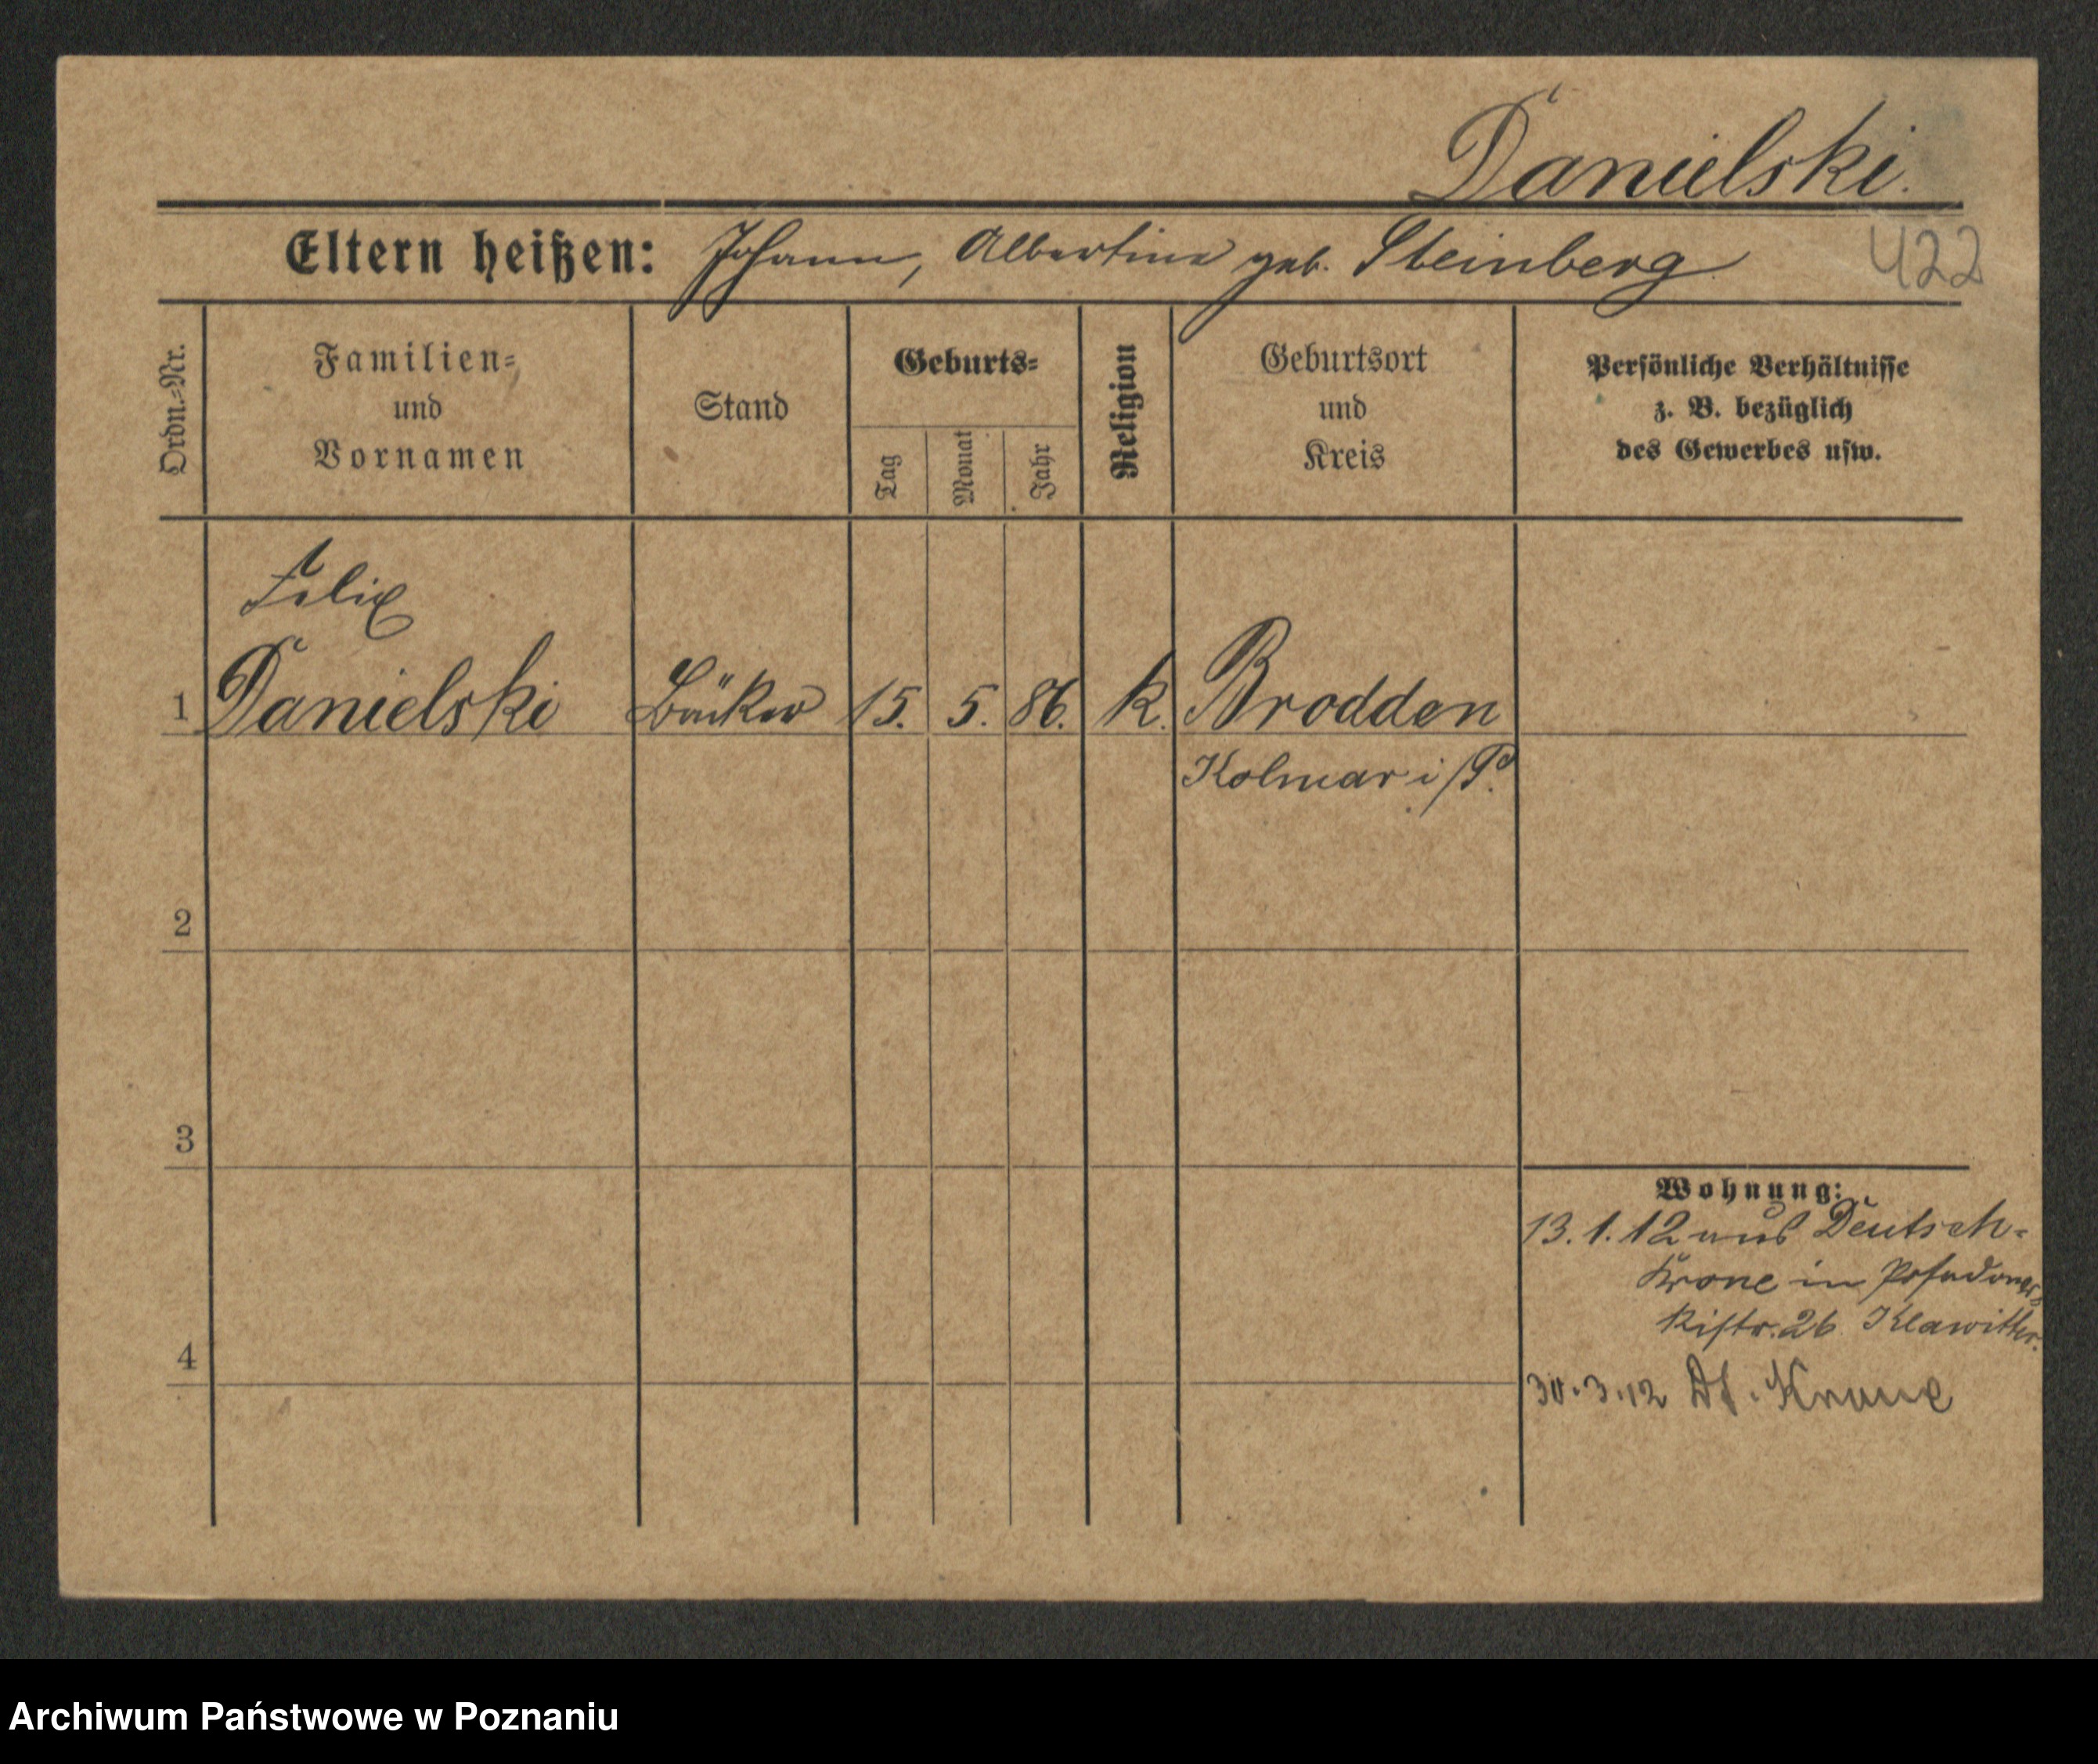 Danielski.
Eltern heißen: Johann, Albertine geb. Steinberg
422
Ordn.-Nr.
Familien-
und
Vornamen
Stand
Geburts-
Tag
Monat
Jahr
Religion
Geburtsort
und
Kreis
Persönliche Verhältnisse
z. B. bezüglich
des Gewerbes usw.
Felix
1 Danielski Bäcker 15. 5. 86. k. Brodden
Kolmar i/P.
2
3
Wohnung:
13.1.12 aus Deutsch-
Krone in
kistr. 26 Klawitter.
4
30.3.12 Dt. Krone
Archiwum Państwowe w Poznaniu